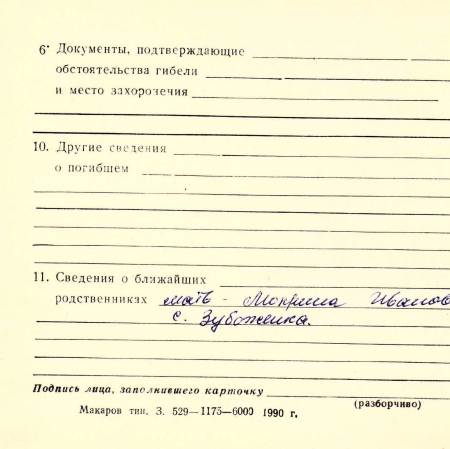 6. Документы, подтверждающие
обстоятельства гибели
и место захоронения
10. Другие сведения
о погибшем
11. Сведения о ближайших
родственниках мать - Мокрина Иванов
с. Зубоженка.
Подпись лица, заполнившего карточку
(разборчиво)
Макаров тип. З. 529—1175—6000 1990 г.